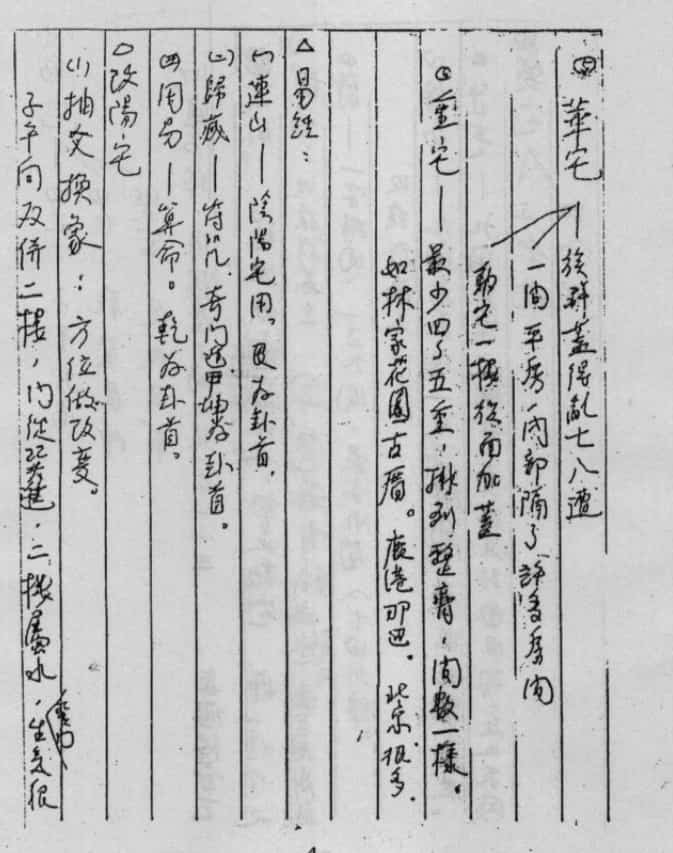 ㈣ 華宅—族群蓋得亂七八遭
一間平房—內部隔了許多房間
動宅一樓後面加蓋
㈤ 重宅—最少四了五重，排列整齊，間數一樣。
如林家花園古厝。鹿港那边。北京很多.
△易經：
㈠連山—陰陽宅用。艮為卦首.
㈡歸藏—符咒.奇门遁甲坤為卦首。
㈣周易—算命。乾為卦首。
△改陽宅
⑴抽爻換象：方位做改变。
子午向双併二樓，门從巽進，二樓屬水，生氣很